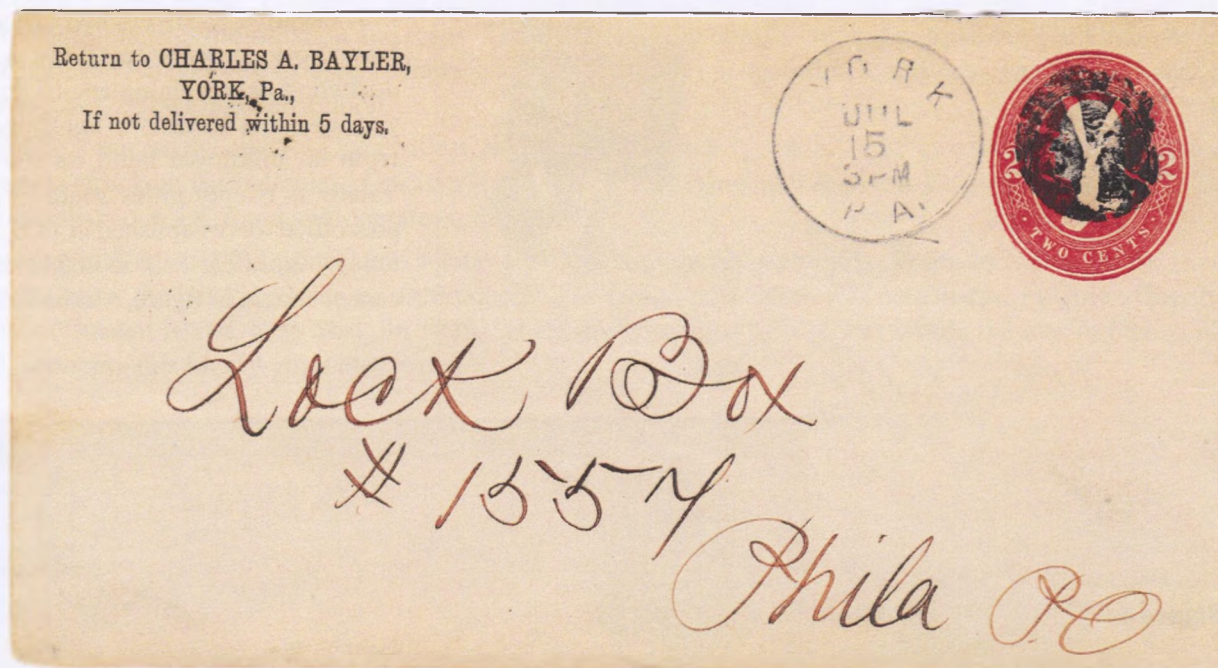 Return to CHARLES A. BAYLER,
YORK, Pa.,
If not delivered within 5 days.
YORK
JUL
15
3PM
PA.
2 2
TWO CENTS
Lock Box
# 1557
Phila P.O